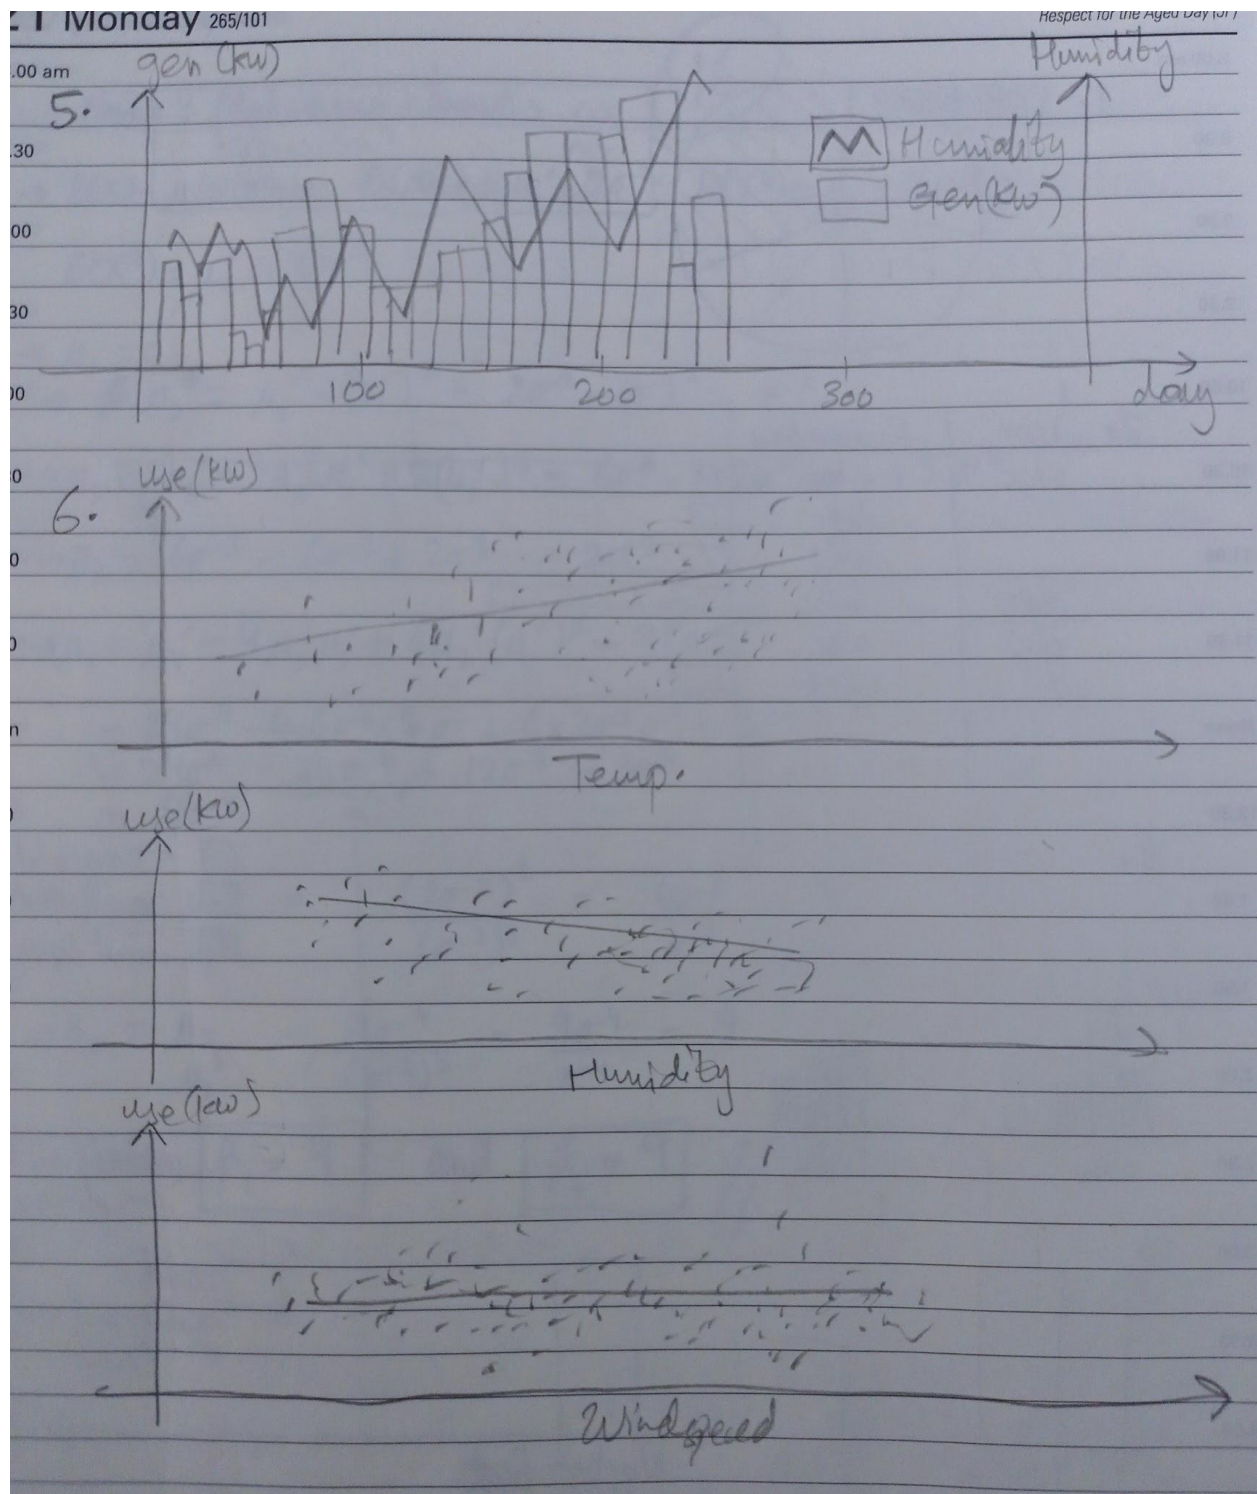 Monday 265/101
Respect for the Aged Day (JP)
.00 am
gen (kw)
Humidity
5.
.30
Humidity
00
Gen(kw)
30
00
100
200
300
day
0
use(kw)
6.
0
0
n
Temp.
use(kw)
Humidity
use(kw)
Windspeed